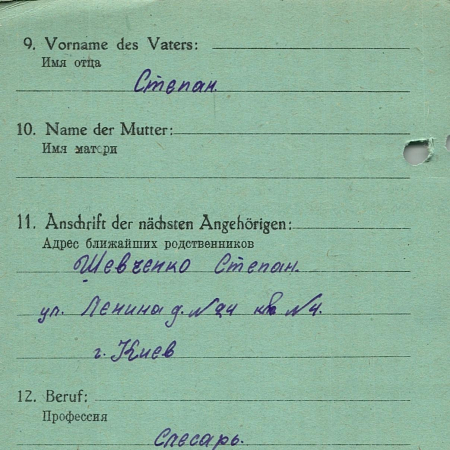 9. Vorname des Vaters:
Имя отца
Степан.
10. Name der Mutter:
Имя матери
11. Anschrift der nächsten Angehörigen:
Адрес ближайших родственников
Шевченко Степан.
ул. Ленина д. №24 кв №4.
г. Киев
12. Beruf:
Профессия
Слесарь.